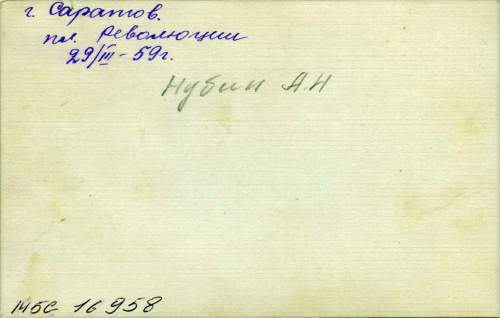 г. Саратов.
пл. Революции
29/III-59г.
Нубин А.Н
145с 16958